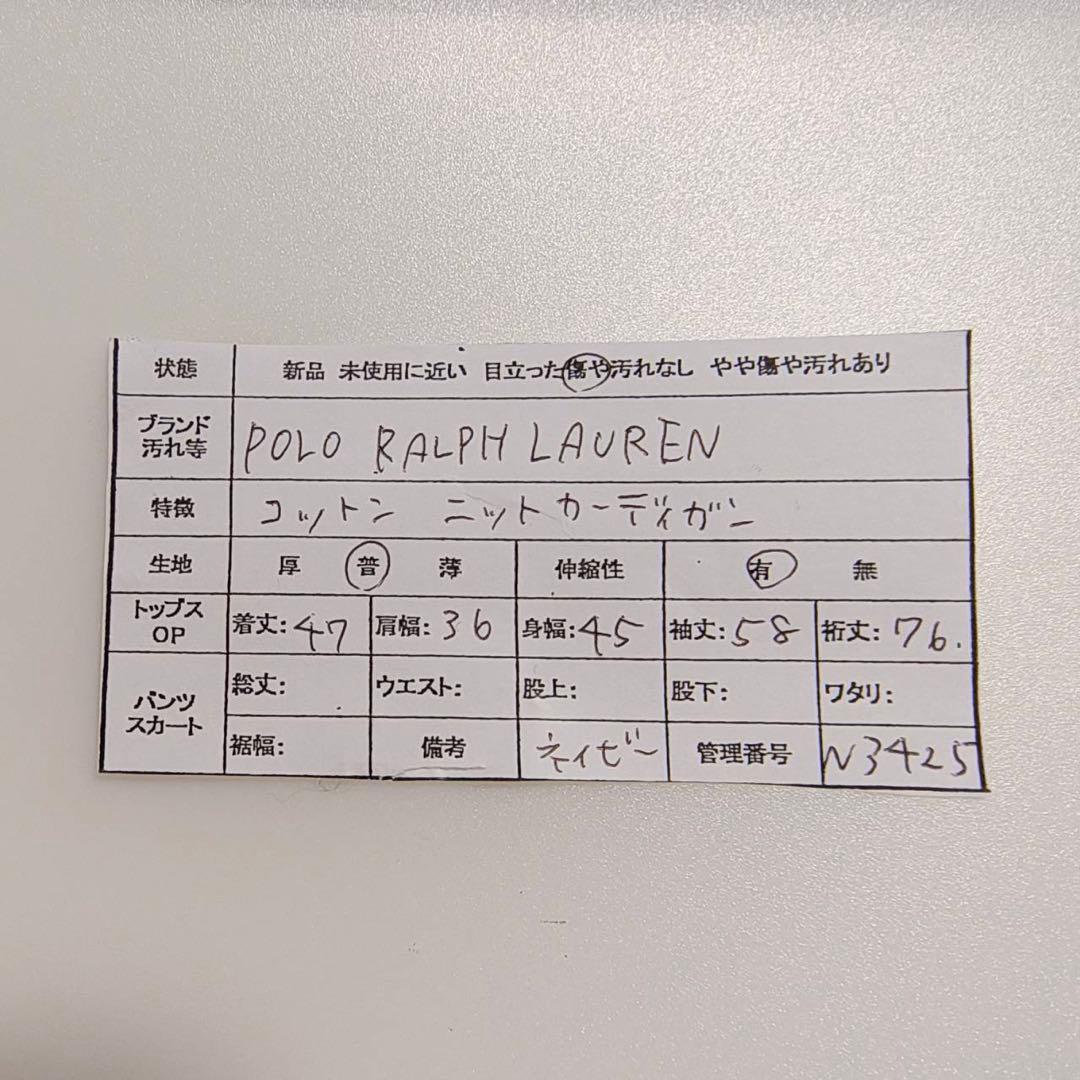 状態 新品 未使用に近い 目立った傷や汚れなし やや傷や汚れあり
ブランド 汚れ等 POLO RALPH LAUREN
特徴 コットン ニットカーディガン
生地 厚 普 薄 伸縮性 有 無
トップス OP 着丈:47 肩幅:36 身幅:45 袖丈:58 裄丈:76.
パンツ スカート 総丈: ウエスト: 股上: 股下: ワタリ:
裾幅: 備考 ネイビー 管理番号 N3425